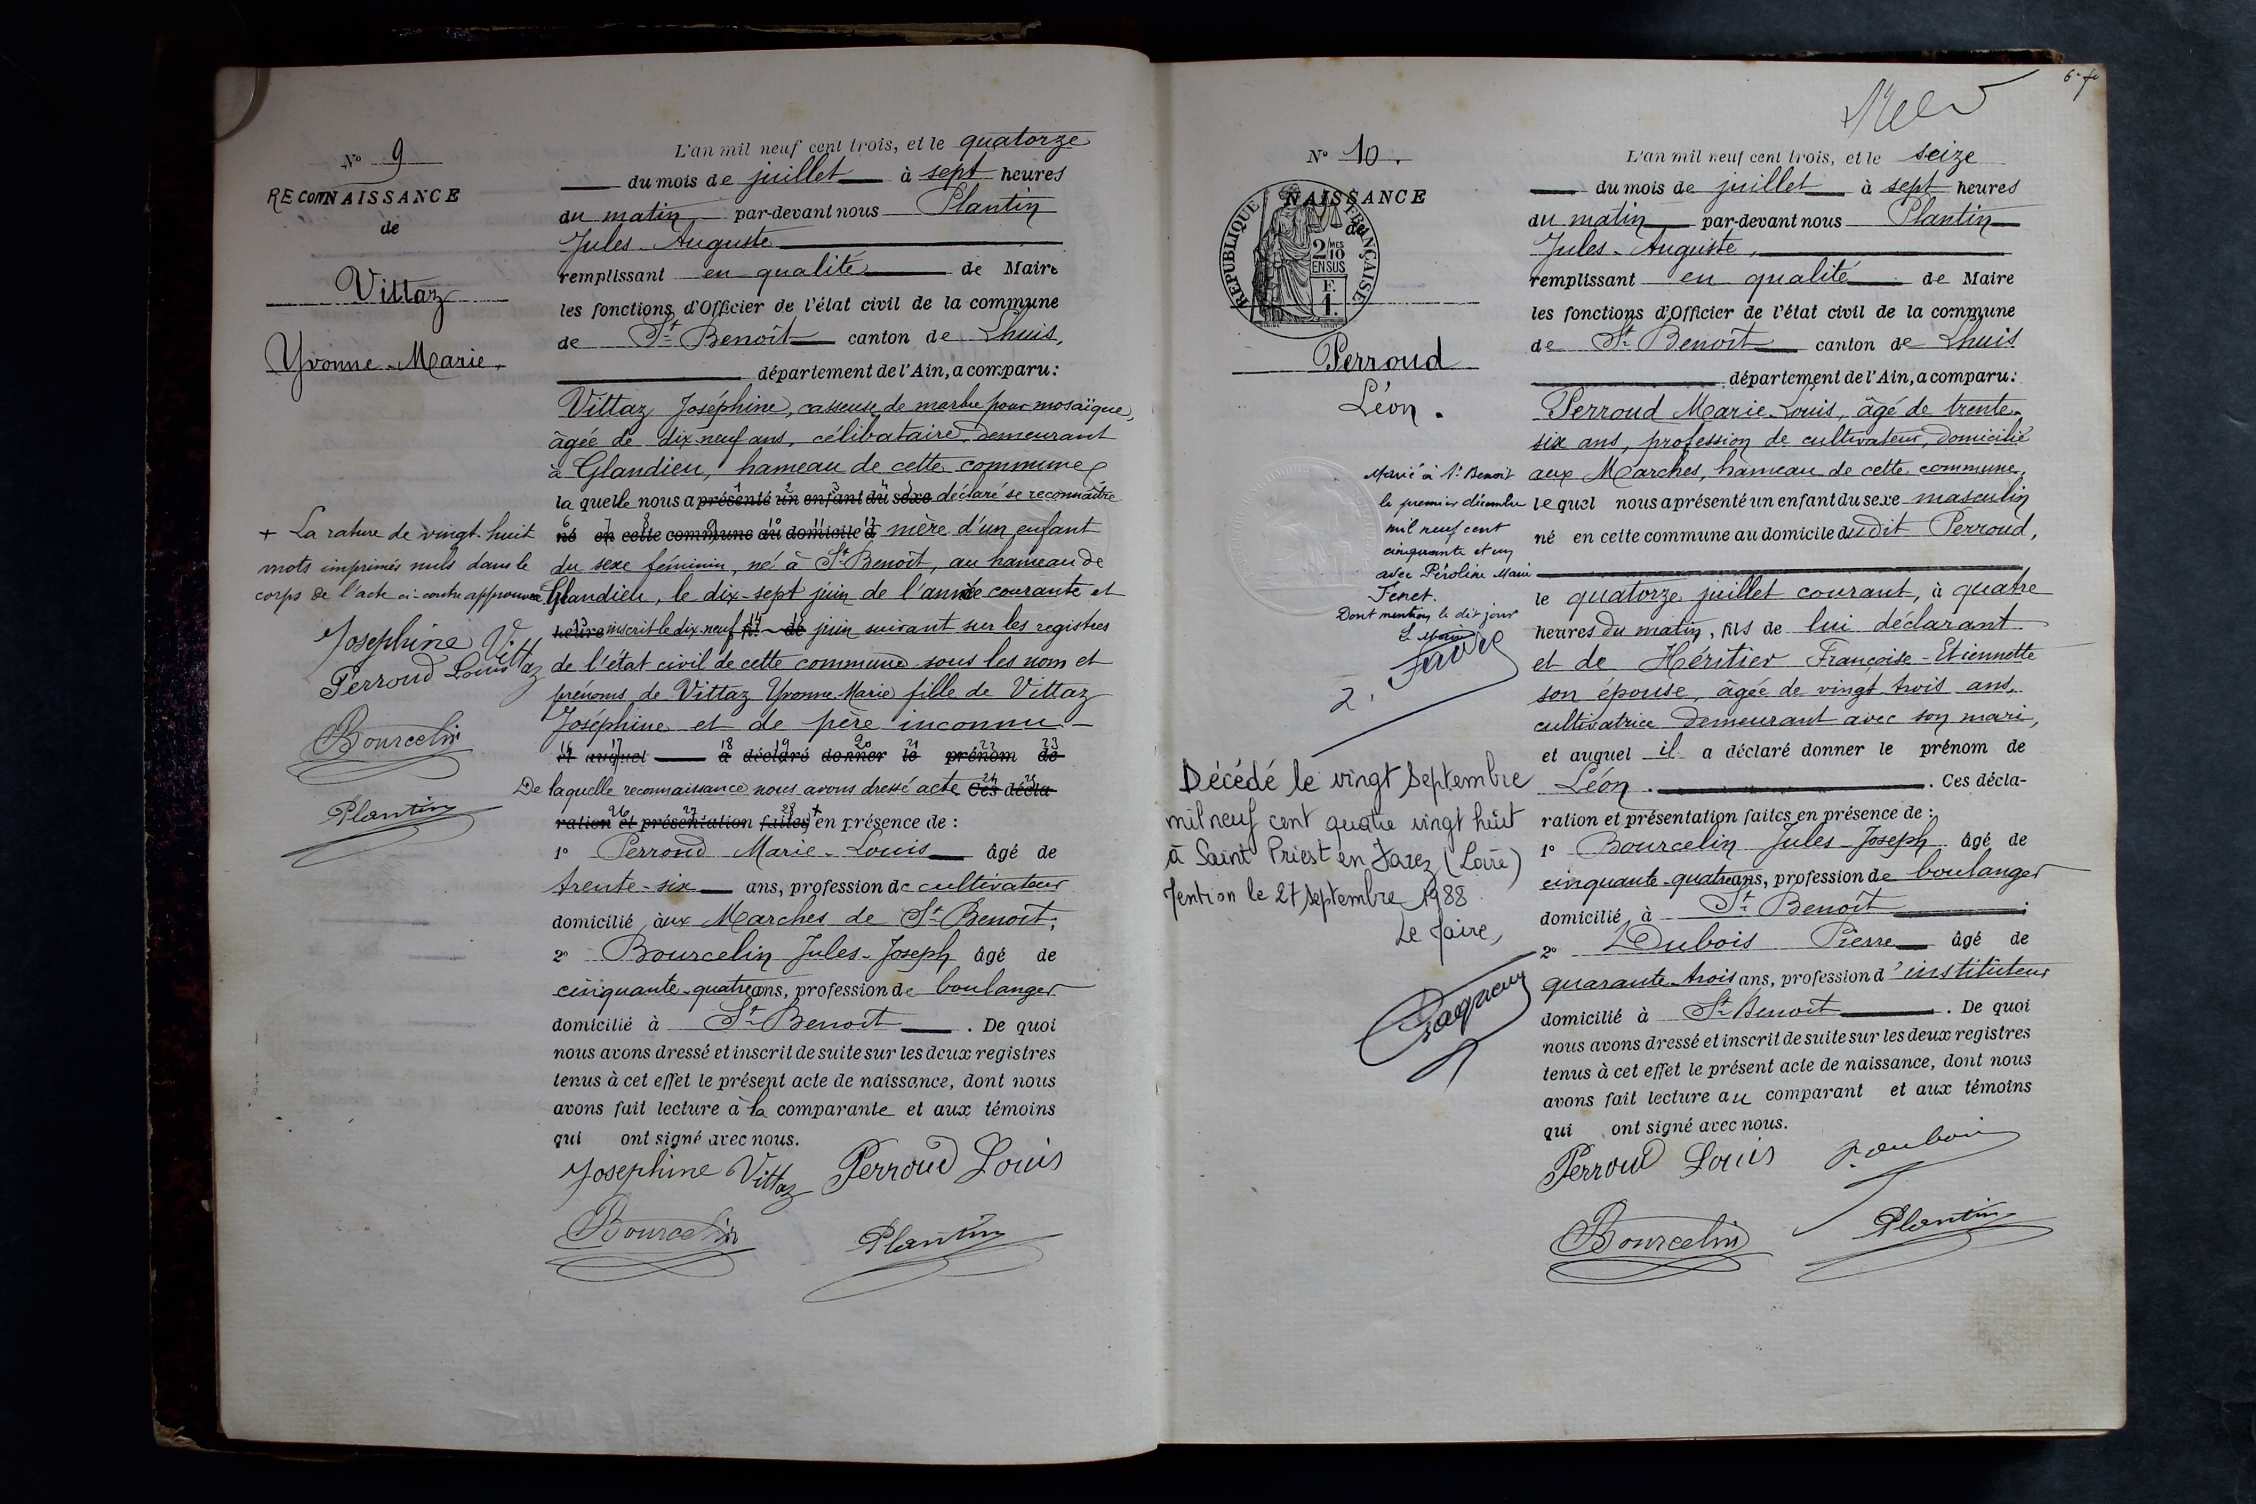 N° 9
RECONNAISSANCE
de
Vittaz
Yvonne-Marie.
L'an mil neuf cent trois, et le quatorze
du mois de juillet à sept heures
du matin, par-devant nous Plantin
Jules-Auguste
remplissant en qualité de Maire
les fonctions d'Officier de l'état civil de la commune
de St Benoît canton de Lhuis,
département de l'Ain, a comparu:
Vittaz Joséphine, casseuse de marbre pour mosaïque,
âgée de dix-neuf ans, célibataire, demeurant
à Glandieu, hameau de cette commune,
la quelle nous a présenté un enfant du sexe déclaré se reconnaître
1 2 3 4 5
né en cette commune au domicile d mère d'un enfant
6 7 8 9 10 11 12
du sexe féminin, né à St Benoît, au hameau de
Glandieu, le dix-sept juin de l'année courante et
heure inscrit le dix-neuf fil de juin suivant sur les registres
13 14 15
de l'état civil de cette commune sous les nom et
prénoms de Vittaz Yvonne-Marie fille de Vittaz
Joséphine et de père inconnu
et auquel a déclaré donner le prénom de
16 17 18 19 20 21 22 23
De laquelle reconnaissance nous avons dressé acte Ces décla-
24 25
ration et présentation faites + en présence de :
26 27 28
1° Perroud Marie-Louis âgé de
trente-six ans, profession de cultivateur
domicilié aux Marches de St Benoît;
2° Bourcelin Jules-Joseph âgé de
cinquante-quatre ans, profession de boulanger
domicilié à St Benoît. De quoi
nous avons dressé et inscrit de suite sur les deux registres
tenus à cet effet le présent acte de naissance, dont nous
avons fait lecture à la comparante et aux témoins
qui ont signé avec nous.
Josephine Vittaz Perroud Louis
Bourcelin Plantin
+ La rature de vingt-huit
mots imprimés nuls dans le
corps de l'acte ci-contre approuvée
Josephine Vittaz
Perroud Louis
Bourcelin
Plantin
6e fo
N° 10.
NAISSANCE
de
RÉPUBLIQUE FRANÇAISE
2/10 MES
EN SUS
F.
1.
Perroud
Léon.
L'an mil neuf cent trois, et le seize
du mois de juillet à sept heures
du matin par-devant nous Plantin
Jules-Auguste,
remplissant en qualité de Maire
les fonctions d'Officier de l'état civil de la commune
de St Benoît canton de Lhuis
département de l'Ain, a comparu:
Perroud Marie-Louis, âgé de trente-
six ans, profession de cultivateur, domicilié
aux Marches, hameau de cette commune,
le quel nous a présenté un enfant du sexe masculin
né en cette commune au domicile dudit Perroud,
le quatorze juillet courant, à quatre
heures du matin, fils de lui déclarant
et de Héritier Françoise-Etiennette
son épouse, âgée de vingt-trois ans,
cultivatrice demeurant avec son mari,
et auquel il a déclaré donner le prénom de
Léon. Ces décla-
ration et présentation faites en présence de :
1° Bourcelin Jules-Joseph âgé de
cinquante-quatre ans, profession de boulanger
domicilié à St Benoît ;
2° Dubois Pierre âgé de
quarante-trois ans, profession d'instituteur
domicilié à St Benoît. De quoi
nous avons dressé et inscrit de suite sur les deux registres
tenus à cet effet le présent acte de naissance, dont nous
avons fait lecture au comparant et aux témoins
qui ont signé avec nous.
Perroud Louis P. Dubois
Bourcelin Plantin
Marié à St Benoît
le premier décembre
mil neuf cent
cinquante et un
avec Péroline Marie
Tenet.
Dont mention le dit jour
Le Maire
Favre
2.
Décédé le vingt septembre
mil neuf cent quatre vingt huit
à Saint Priest en Jarez (Loire)
Mention le 27 septembre 1988
Le Maire,